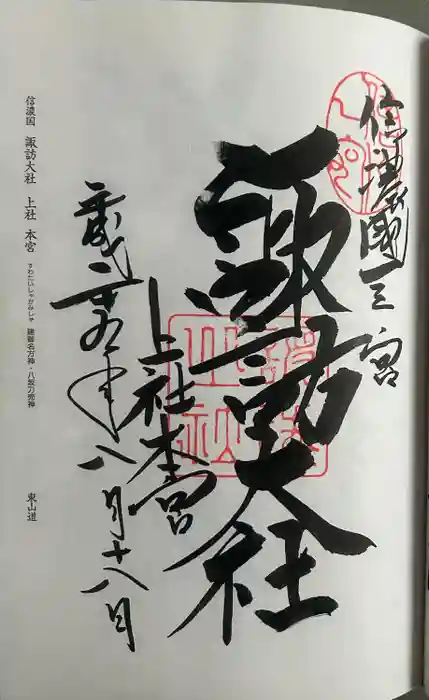 信濃國一之宮
諏訪大社
上社本宮
八月十八日
信濃国 諏訪大社 上社 本宮 すわたいしゃかみしゃ 建御名方神・八坂刀売神 東山道